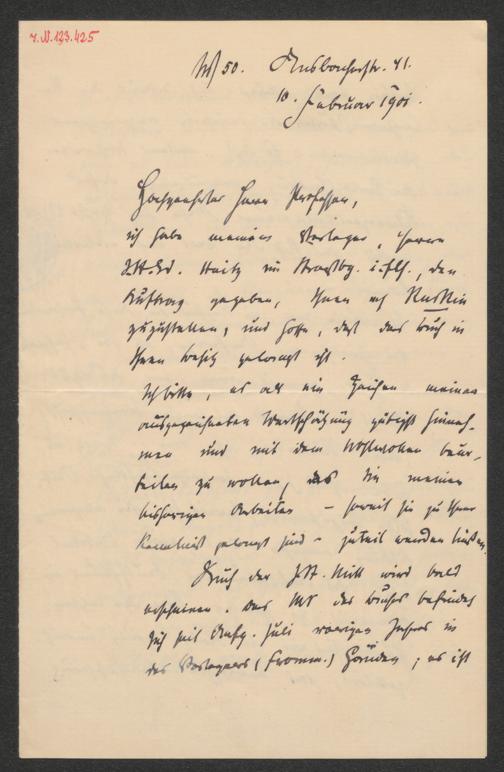 I.N.123.425
W 50. Ansbacherstr. 41.
10. Februar 1901.
Hochgeehrter Herr Professor,
ich habe meinem Verleger, Herrn
J.H.Ed. Heitz in Straßbg. i. Els., den
Auftrag gegeben, Ihnen m Ruskin
zuzustellen, und hoffe, daß das Buch in
Ihren Besitz gelangt ist.
Ich bitte, es als ein Zeichen meiner
ausgezeichneten Wertschätzung gütigst hinneh-
men und mit dem Wohlwollen beur-
teilen zu wollen, das Sie meinen
bisherigen Arbeiten – soweit sie zu Ihrer
Kenntniß gelangt sind – zuteil werden ließen.
Auch der J.St. Mill wird bald
erscheinen. Das MS des Buchs befindet
sich seit Anfg. Juli vorigen Jahres in
des Verlegers (Fromm.) Händen; es ist